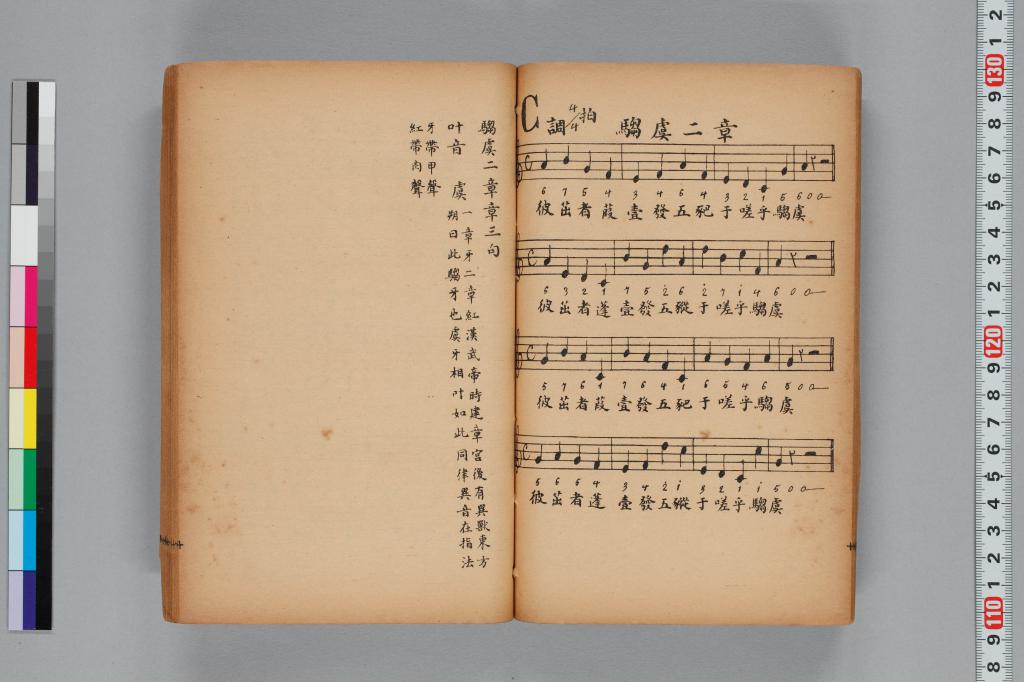 C調 4/4拍 騶虞二章
6 7 5 4 3 4 6 4 3 2 1 5 6 0 0
彼茁者葭壹發五豝于嗟乎騶虞
6 3 2 1 7 6 5 2 6 2 7 1 4 6 0 0
彼茁者蓬壹發五豵于嗟乎騶虞
5 7 6 1 7 6 4 1 6 5 4 6 5 0 0
彼茁者葭壹發五豝于嗟乎騶虞
5 6 5 4 3 4 2 1 3 2 1 1 5 0 0
彼茁者蓬壹發五豵于嗟乎騶虞
騶虞二章章三句
叶音 虞 一章牙二章紅漢武帝時建章宮後有異獸東方
朔曰此騶牙也虞牙相叶如此同律異音在指法
牙帶甲聲
紅帶肉聲
8 9 110 1 2 3 4 5 6 7 8 9 120 1 2 3 4 5 6 7 8 9 130 1 2